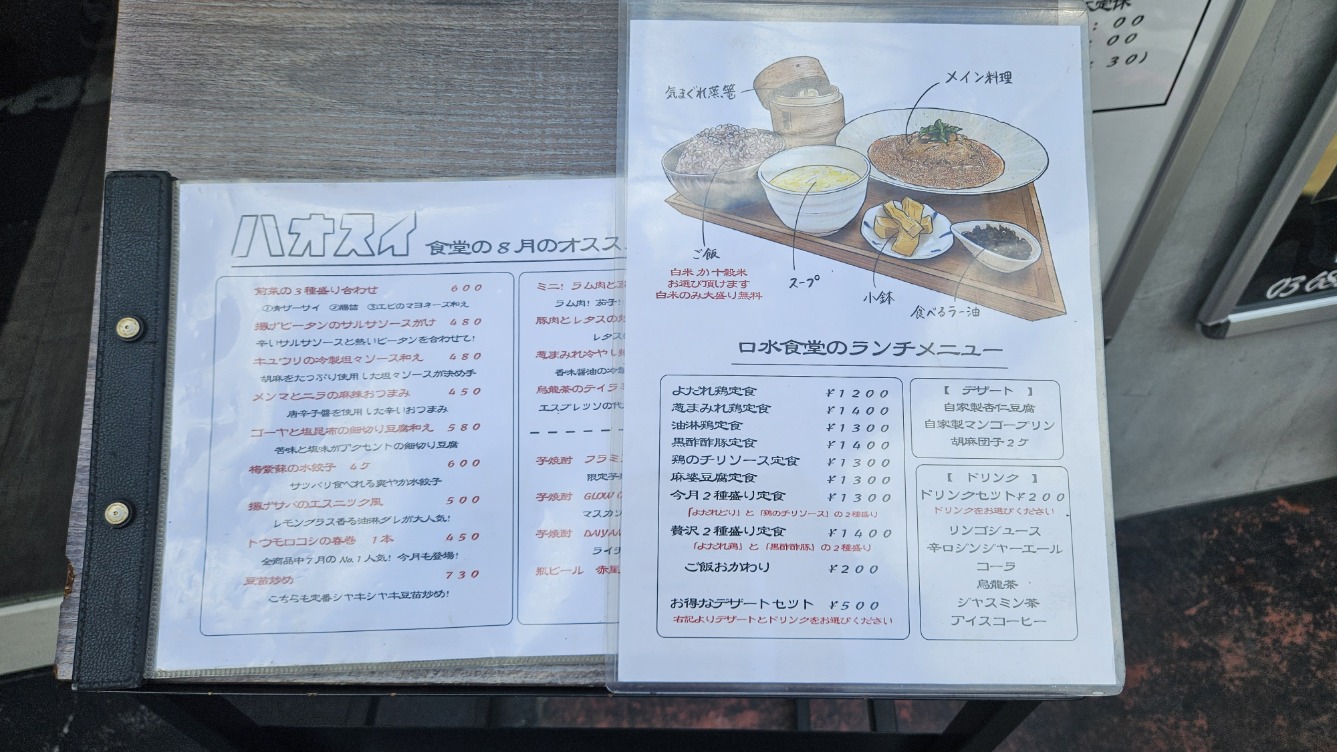 ハオスイ 食堂の8月のオスス
前菜の3種盛り合わせ 600
①青ザーサイ ②腸詰 ③エビのマヨネーズ和え
揚げピータンのサルサソースがけ 480
辛いサルサソースと熱いピータンを合わせて!
キュウリの冷製坦々ソース和え 480
胡麻をたっぷり使用した坦々ソースが決め手
メンマとニラの麻辣おつまみ 450
唐辛子醬を使用した辛いおつまみ
ゴーヤと塩昆布の細切り豆腐和え 580
苦味と塩味がアクセントの細切り豆腐
梅紫蘇の水餃子 4ケ 600
サッパリ食べれる爽やか水餃子
揚げサバのエスニック風 500
レモングラス香る油淋ダレが大人気!
トウモロコシの春巻 1本 450
全商品中7月のNo.1人気! 今月も登場!
豆苗炒め 730
こちらも定番シャキシャキ豆苗炒め!
ミニ! ラム肉と
ラム肉! 茄子!
豚肉とレタスの
レタス
葱まみれ冷やし
香味醤油の冷
烏龍茶のテイラミ
エスプレッソの代
芋焼酎 フラミ
限定芋
芋焼酎 GLOW
マスカ
芋焼酎 DAIYAM
ライチ
瓶ビール 赤星
気まぐれ蒸篭
メイン料理
ご飯
白米か十穀米
お選び頂けます
白米のみ大盛り無料
スープ
小鉢
食べるラー油
口水食堂のランチメニュー
よだれ鶏定食 ¥1200
葱まみれ鶏定食 ¥1400
油淋鶏定食 ¥1300
黒酢酢豚定食 ¥1400
鶏のチリソース定食 ¥1300
麻婆豆腐定食 ¥1300
今月2種盛り定食 ¥1300
「よだれどり」と「鶏のチリソース」の2種盛り
贅沢2種盛り定食 ¥1400
「よだれ鶏」と「黒酢酢豚」の2種盛り
ご飯おかわり ¥200
お得なデザートセット ¥500
右記よりデザートとドリンクをお選びください
【 デザート 】
自家製杏仁豆腐
自家製マンゴープリン
胡麻団子2ケ
【 ドリンク 】
ドリンクセット¥200
ドリンクをお選びください
リンゴジュース
辛口ジンジャーエール
コーラ
烏龍茶
ジャスミン茶
アイスコーヒー
: 00
: 00
: 30)